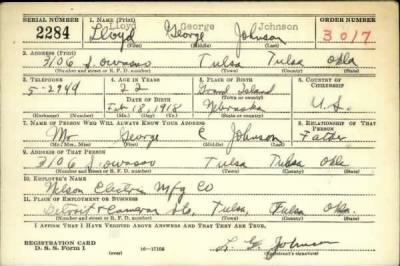 SERIAL NUMBER 1. NAME (Print) Lloyd George Johnson ORDER NUMBER
2284 Lloyd George Johnson 3017
(First) (Middle) (Last)
2. ADDRESS (Print)
3106 S. Owasso Tulsa Tulsa Okla
(Number and street or R. F. D. number) (Town) (County) (State)
3. TELEPHONE 4. AGE IN YEARS 5. PLACE OF BIRTH 6. COUNTRY OF CITIZENSHIP
5-2944 22 Grand Island
DATE OF BIRTH (Town or county)
Feb. 18, 1918 Nebraska U.S.
(Mo.) (Day) (Yr.) (State or country)
7. NAME OF PERSON WHO WILL ALWAYS KNOW YOUR ADDRESS 8. RELATIONSHIP OF THAT PERSON
Mr George C Johnson Father
(Mr., Mrs., Miss) (First) (Middle) (Last)
9. ADDRESS OF THAT PERSON
3106 S. Owasso Tulsa Tulsa Okla
(Number and street or R. F. D. number) (Town) (County) (State)
10. EMPLOYER'S NAME
Nelson Electric Mfg Co
11. PLACE OF EMPLOYMENT OR BUSINESS
Detroit & Cameron Sts, Tulsa, Tulsa Okla.
(Number and street or R. F. D. number) (Town) (County) (State)
I AFFIRM THAT I HAVE VERIFIED ABOVE ANSWERS AND THAT THEY ARE TRUE.
REGISTRATION CARD
D. S. S. Form 1 16-17105 L. G. Johnson
(Registrant's signature)